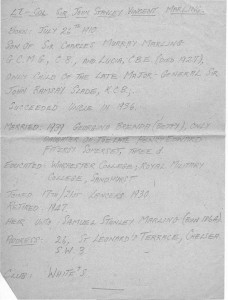 LT-COL SIR JOHN STANLEY VINCENT MARLING.
BORN: JULY 22ND 1910.
SON OF SIR CHARLES MURRAY MARLING
G.C.M.G., C.B., AND LUCIA, C.B.E. (DIED 1927),
ONLY CHILD OF THE LATE MAJOR-GENERAL SIR
JOHN RAMSAY SLADE, K.C.B.
SUCCEEDED UNCLE IN 1936.
MARRIED: 1939 GEORGINA BRENDA (BETTY), ONLY
FITZROY SOMERSET,
EDUCATED: WINCHESTER COLLEGE; ROYAL MILITARY
COLLEGE, SANDHURST
JOINED 17TH/21ST LANCERS 1930
RETIRED 1947.
HEIR, COUSIN SAMUEL STANLEY MARLING (BORN
ADDRESS: 26, ST LEONARD'S TERRACE, CHELSEA
S.W.3
CLUB: WHITE'S